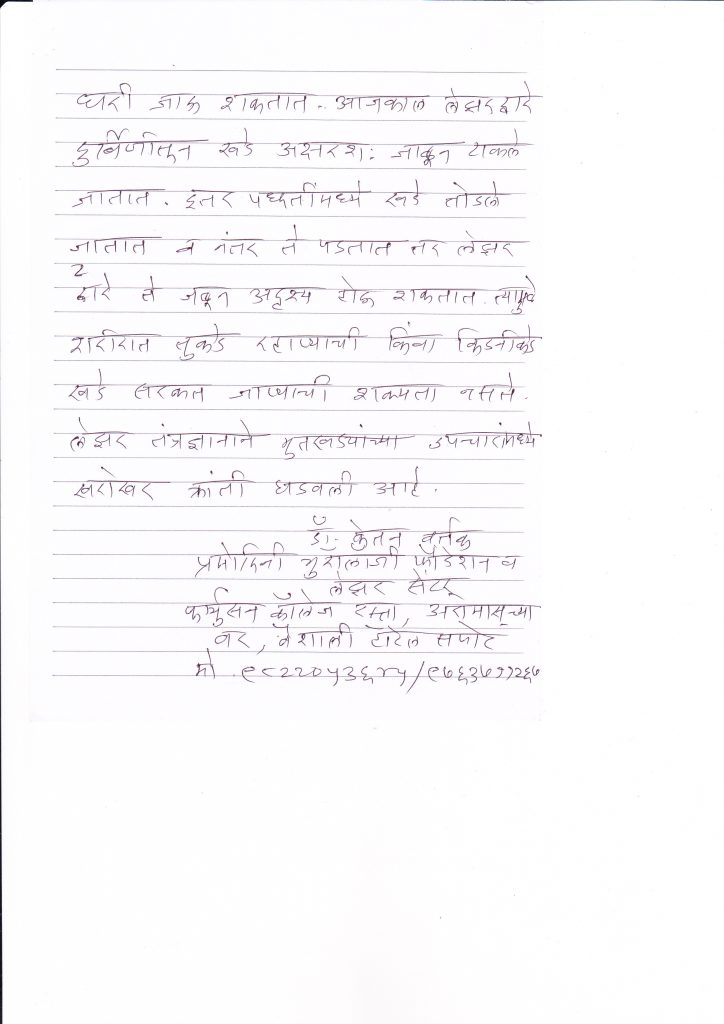 घरी जाऊ शकतात. आजकाल लेझरद्वारे
दुर्बिणीतून खडे अक्षरशः जाळून टाकले
जातात. इतर पध्दतींमध्ये खडे तोडले
जातात व नंतर ते पडतात तर लेझर
द्वारे ते जळून अदृश्य होऊ शकतात. त्यामुळे
शरीरात तुकडे रहाण्याची किंवा किडनीकडे
खडे सरकत जाण्याची शक्यता नसते.
लेझर तंत्रज्ञानाने मुतखड्यांच्या उपचारांमध्ये
खरोखर क्रांती घडवली आहे.
डॉ. केतन वर्तक
प्रमोदिनी मुरालाजी फौंडेशन व
लेझर सेंटर
फर्ग्युसन कॉलेज रस्ता,
वर, वैशाली हॉटेल समोर
मो. ९८२२०५३६४५/९७६३७११२६७